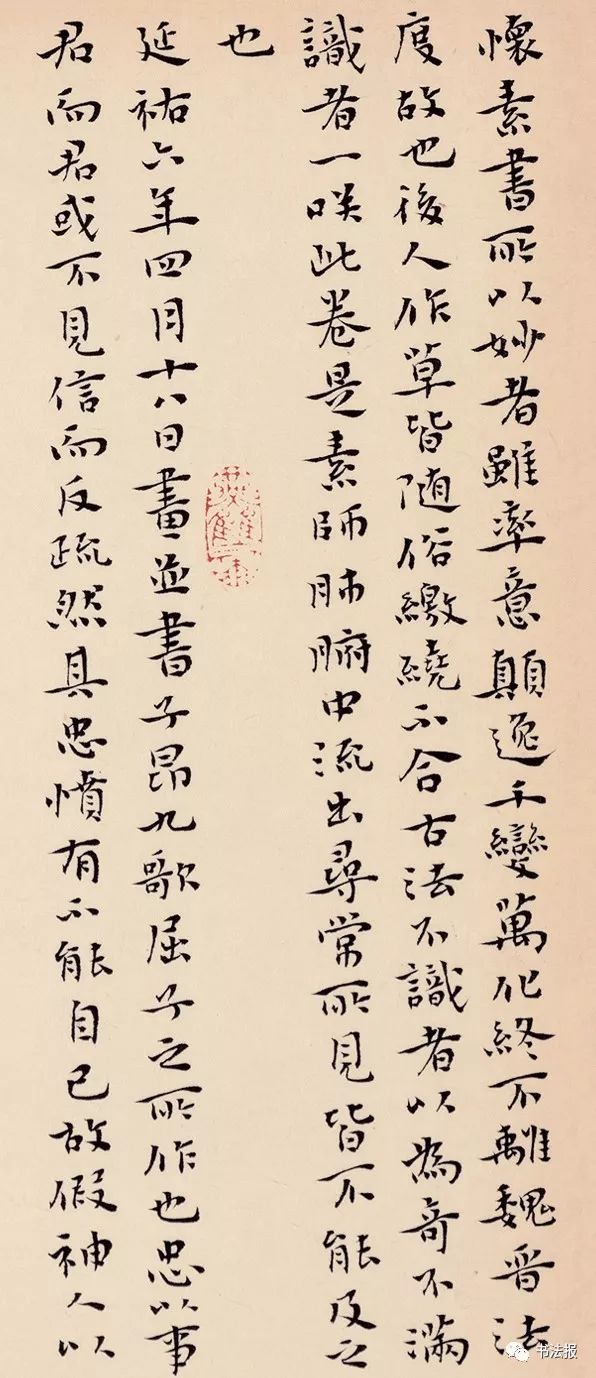 懷素書所以妙者雖率意顛逸千變萬化終不離魏晉法
度故也後人作草皆随俗繳繞不合古法不識者以為奇不滿
識者一咲此卷是素師肺腑中流出尋常所見皆不能及之
也
延祐六年四月十八日畫並書子昂九歌屈子之所作也忠以事
君而君或不見信而反疏然其忠憤有不能自已故假神人以
书法报